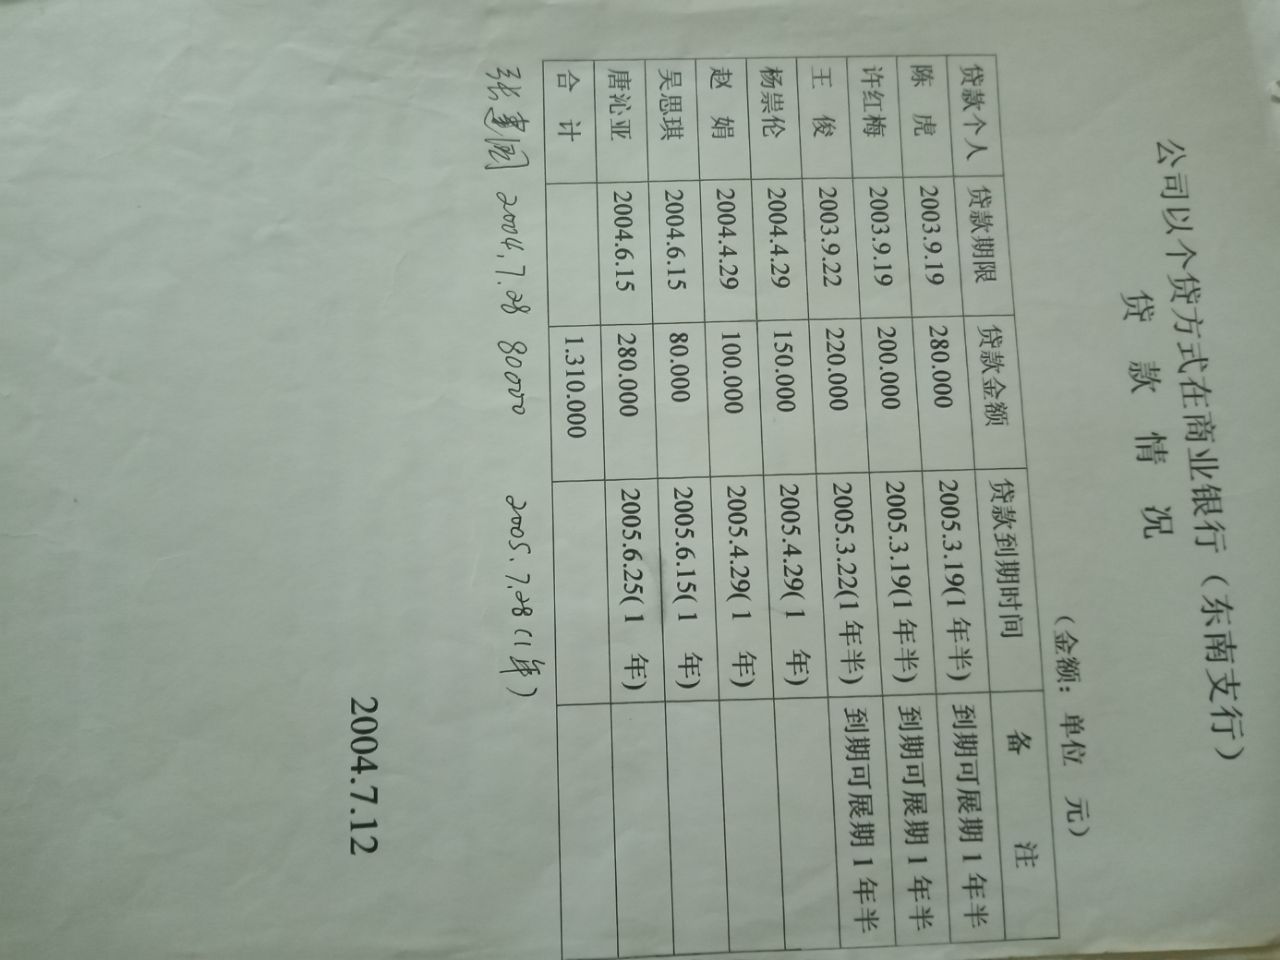 公司以个贷方式在商业银行（东南支行）
贷 款 情 况
（金额：单位 元）
贷款个人 贷款期限 贷款金额 贷款到期时间 备 注
陈 虎 2003.9.19 280.000 2005.3.19(1 年半) 到期可展期 1 年半
许红梅 2003.9.19 200.000 2005.3.19(1 年半) 到期可展期 1 年半
王 俊 2003.9.22 220.000 2005.3.22(1 年半) 到期可展期 1 年半
杨崇伦 2004.4.29 150.000 2005.4.29( 1 年)
赵 娟 2004.4.29 100.000 2005.4.29( 1 年)
吴思琪 2004.6.15 80.000 2005.6.15( 1 年)
唐沁亚 2004.6.15 280.000 2005.6.25( 1 年)
合 计 1.310.000
张建国 2004.7.28 80000 2005.7.28(1年)
2004.7.12